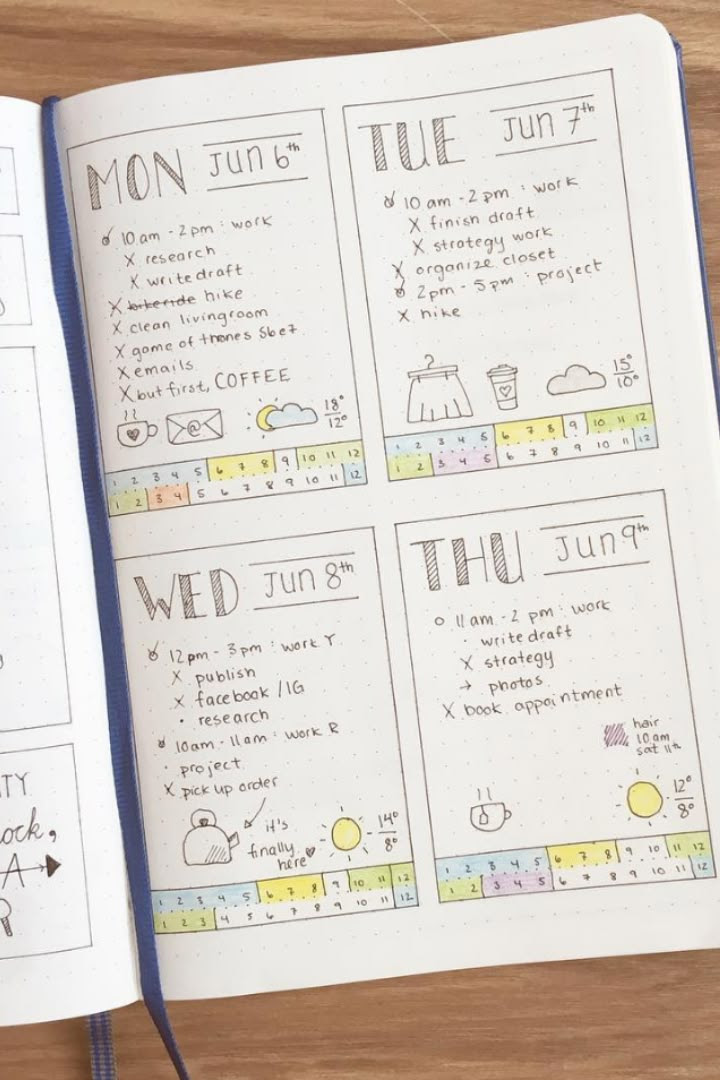 MON Jun 6th
10 am - 2 pm : work
X research
X write draft
X bikeride hike
X clean livingroom
X game of thrones S6e7
X emails
X but first, COFFEE
@
18°
12°
1 2 3 4 5 6 7 8 9 10 11 12
1 2 3 4 5 6 7 8 9 10 11 12
TUE Jun 7th
10 am - 2 pm : work
X finish draft
X strategy work
X organize closet
2pm - 5pm : project
X hike
15°
10°
1 2 3 4 5 6 7 8 9 10 11 12
1 2 3 4 5 6 7 8 9 10 11 12
WED Jun 8th
12 pm - 3 pm : work Y
X publish
X facebook / IG
• research
10am - 11am : work R
• project
X pick up order
it's
finally
here
14°
8°
1 2 3 4 5 6 7 8 9 10 11 12
1 2 3 4 5 6 7 8 9 10 11 12
THU Jun 9th
11 am - 2 pm : work
• write draft
X strategy
→ photos
X book appointment
hair
10 am
sat 11th
12°
8°
1 2 3 4 5 6 7 8 9 10 11 12
1 2 3 4 5 6 7 8 9 10 11 12